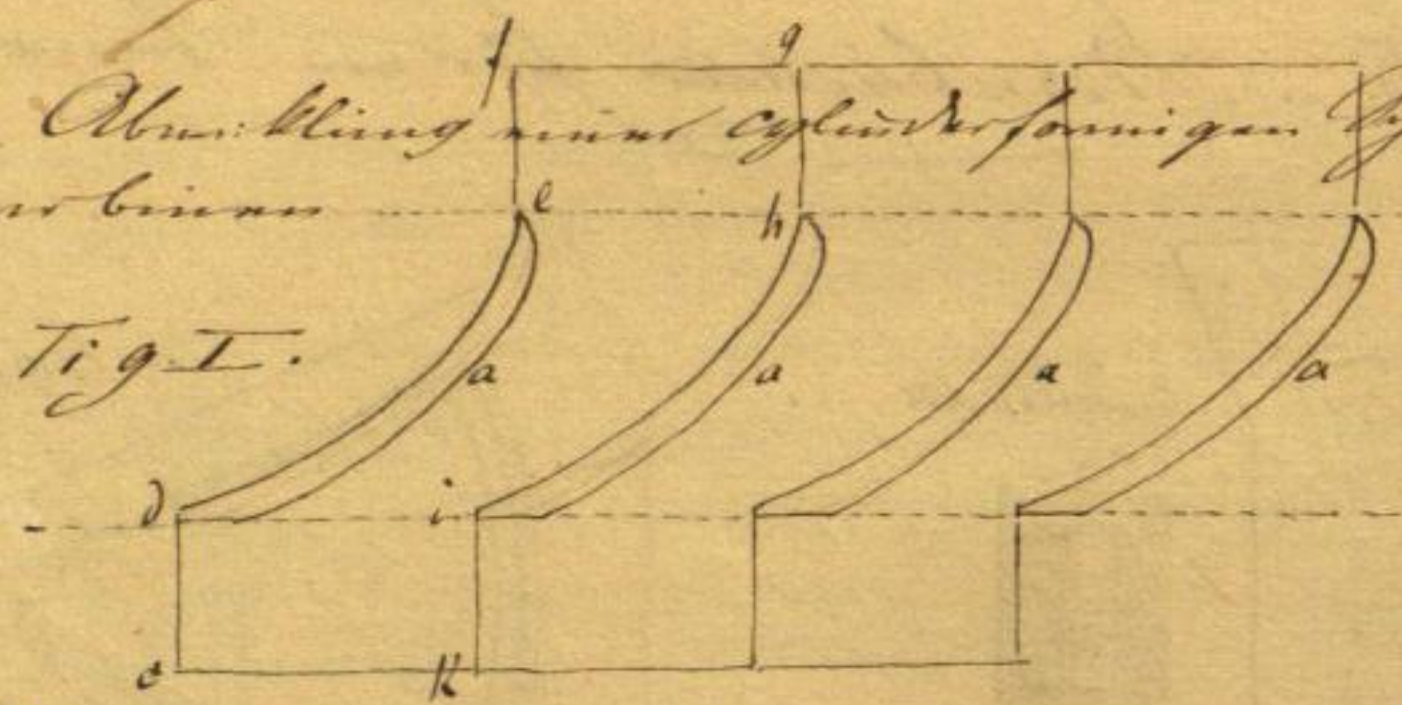 f g
Abwicklung einer cylinderförmigen
e h
Fig. I.
a a a a
d i
c k